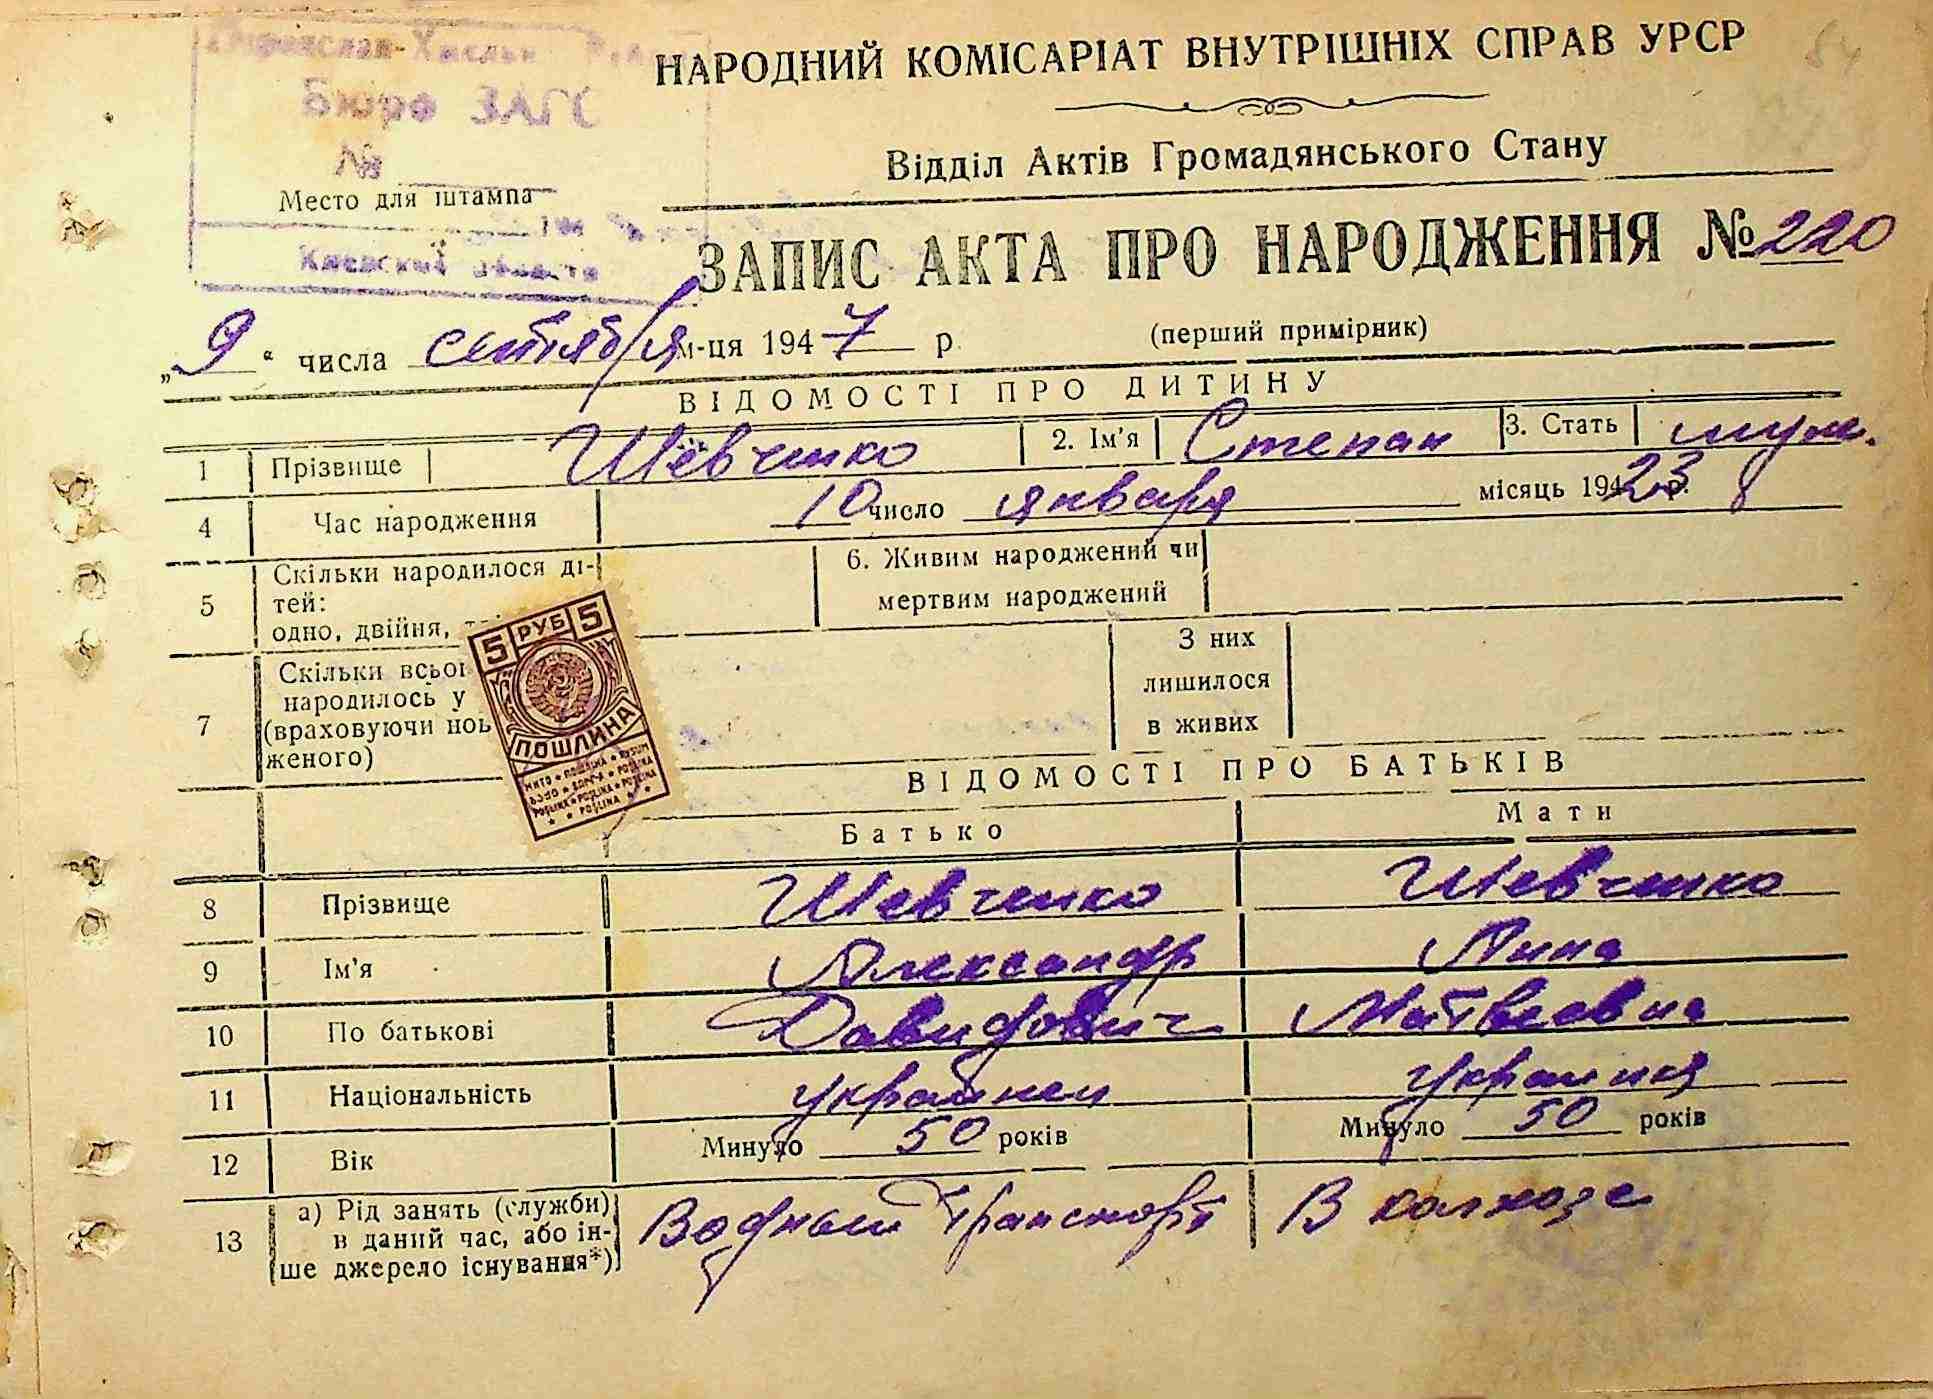 НАРОДНИЙ КОМІСАРІАТ ВНУТРІШНІХ СПРАВ УРСР
Бюро ЗАГС
№
Место для штампа
Киевской области
Відділ Актів Громадянського Стану
ЗАПИС АКТА ПРО НАРОДЖЕННЯ № 220
„9“ числа сентября м-ця 1947 р.
(перший примірник)
ВІДОМОСТІ ПРО ДИТИНУ
1 Прізвище Шевченко 2. Ім'я Степан 3. Стать муж.
4 Час народження 10 число января місяць 1923 р.
5 Скільки народилося ді-
тей:
одно, двійня,
6. Живим народжений чи
мертвим народжений
7 Скільки всього
народилось у
(враховуючи нов
женого)
З них
лишилося
в живих
5 РУБ 5
ПОШЛИНА
МИТО ★ ПОШЛІНА ★ RUSUM
POŞLINA ★ POŞLINA ★ POŞLINA
★ ★ POŞLINA ★ ★
ВІДОМОСТІ ПРО БАТЬКІВ
Батько Мати
8 Прізвище Шевченко Шевченко
9 Ім'я Александр Анна
10 По батькові Давидович Матвеевна
11 Національність украинец украинка
12 Вік Минуло 50 років Минуло 50 років
13 а) Рід занять (служби)
в даний час, або ін-
ше джерело існування*)
Водный транспорт В колхозе